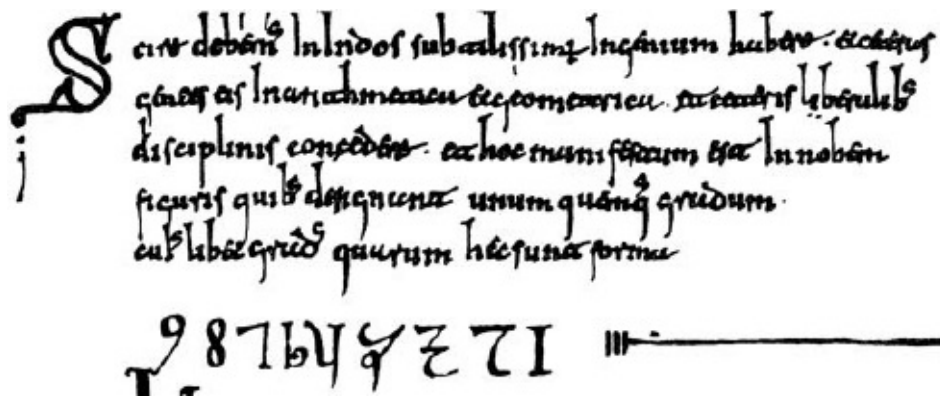 Scire debem⁹ In Indos subtilissimũ Ingenium habere. et ceteras
gentes eis In arithmetica et geometrica. et ceteris liberalib⁹
disciplinis concedere. et hoc manifestum est In nobem
figuris quib⁹ designant unum quemq⁹ gradum.
cui⁹libet grad⁹ quarum hec sunt forma
9 8 7 6 5 4 3 2 1